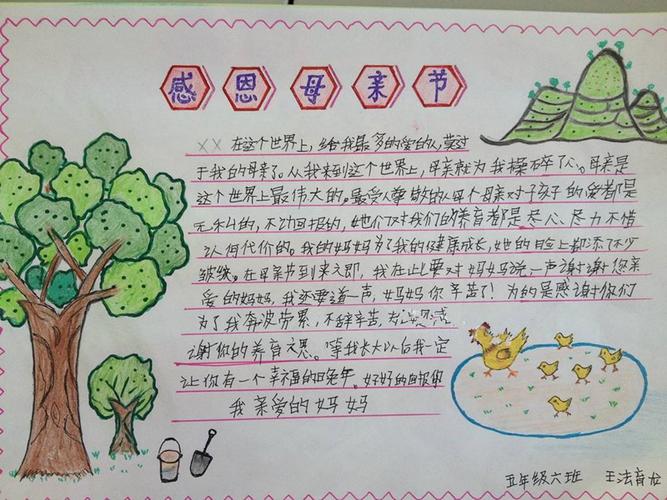 感恩母亲节
XX 在这个世界上,给我最多的爱的人莫过
于我的母亲了。从我来到这个世界上,母亲就为我操碎了心。母亲是
这个世界上最伟大的。最受人尊敬的人每个母亲对子孩子的爱都是
无私的,不动回报的,她们对我们的养育都是尽心、尽力不惜
认何代价的。我的妈妈为了我的健康成长,她的脸上都添了不少
皱纹。在母亲节到来之即,我在此要对妈妈说一声谢谢您亲
爱的妈妈,我还要道一声,妈妈你辛苦了!为的是感谢你们
为了我奔波劳累,不辞辛苦,感
谢你的养育之恩。等我长大以后我一定
让你有一个幸福的晚年。好好的回报
我亲爱的妈妈
五年级六班 王法育龙